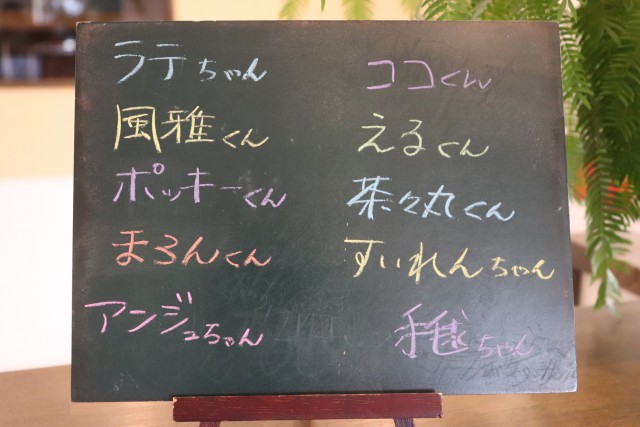 ラテちゃん
風雅くん
ポッキーくん
まろんくん
アンジュちゃん
ココくん
えるくん
茶々丸くん
すいれんちゃん
手毬ちゃん